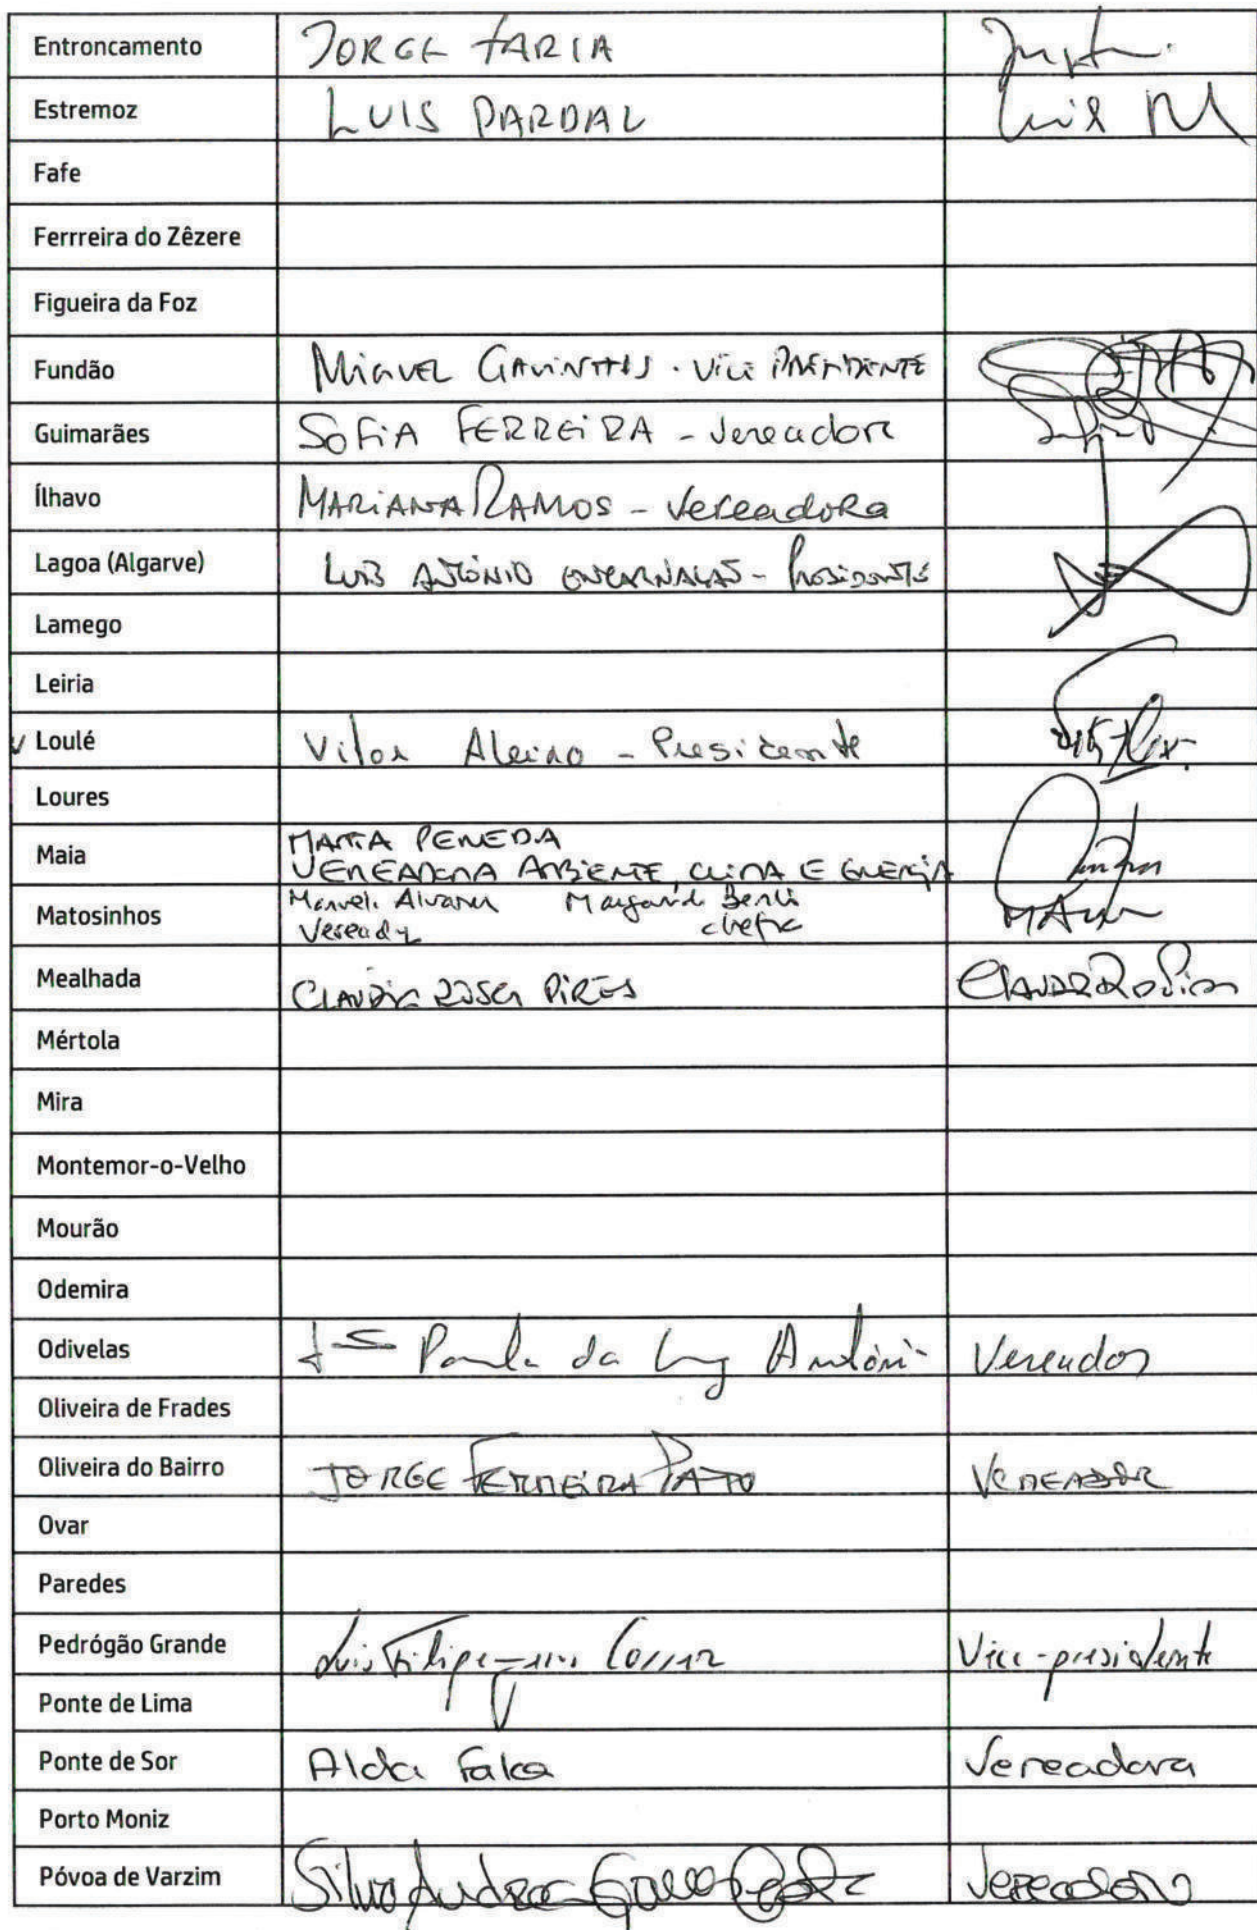 Entroncamento JORGE FARIA
Estremoz LUIS PARDAL Luis
Fafe
Ferrreira do Zêzere
Figueira da Foz
Fundão MIGUEL GAVINHOS · VICE PRESIDENTE
Guimarães SOFIA FERREIRA - Vereadora
Ílhavo MARIANA RAMOS - Vereadora
Lagoa (Algarve) LUÍS ANTÓNIO ENCARNAÇÃO - Presidente
Lamego
Leiria
Loulé Vitor Aleixo - Presidente
Loures
Maia MARTA PENEDA
VEREADORA AMBIENTE, CLIMA E ENERGIA
Matosinhos Alvarez
chefe
Mealhada CLAUDIA PIRES
Mértola
Mira
Montemor-o-Velho
Mourão
Odemira
Odivelas Paulo da António Vereador
Oliveira de Frades
Oliveira do Bairro JORGE FERREIRA PATO VEREADOR
Ovar
Paredes
Pedrógão Grande Luis Filipe Vice-presidente
Ponte de Lima
Ponte de Sor Alda Falca Vereadora
Porto Moniz
Póvoa de Varzim Vereadora